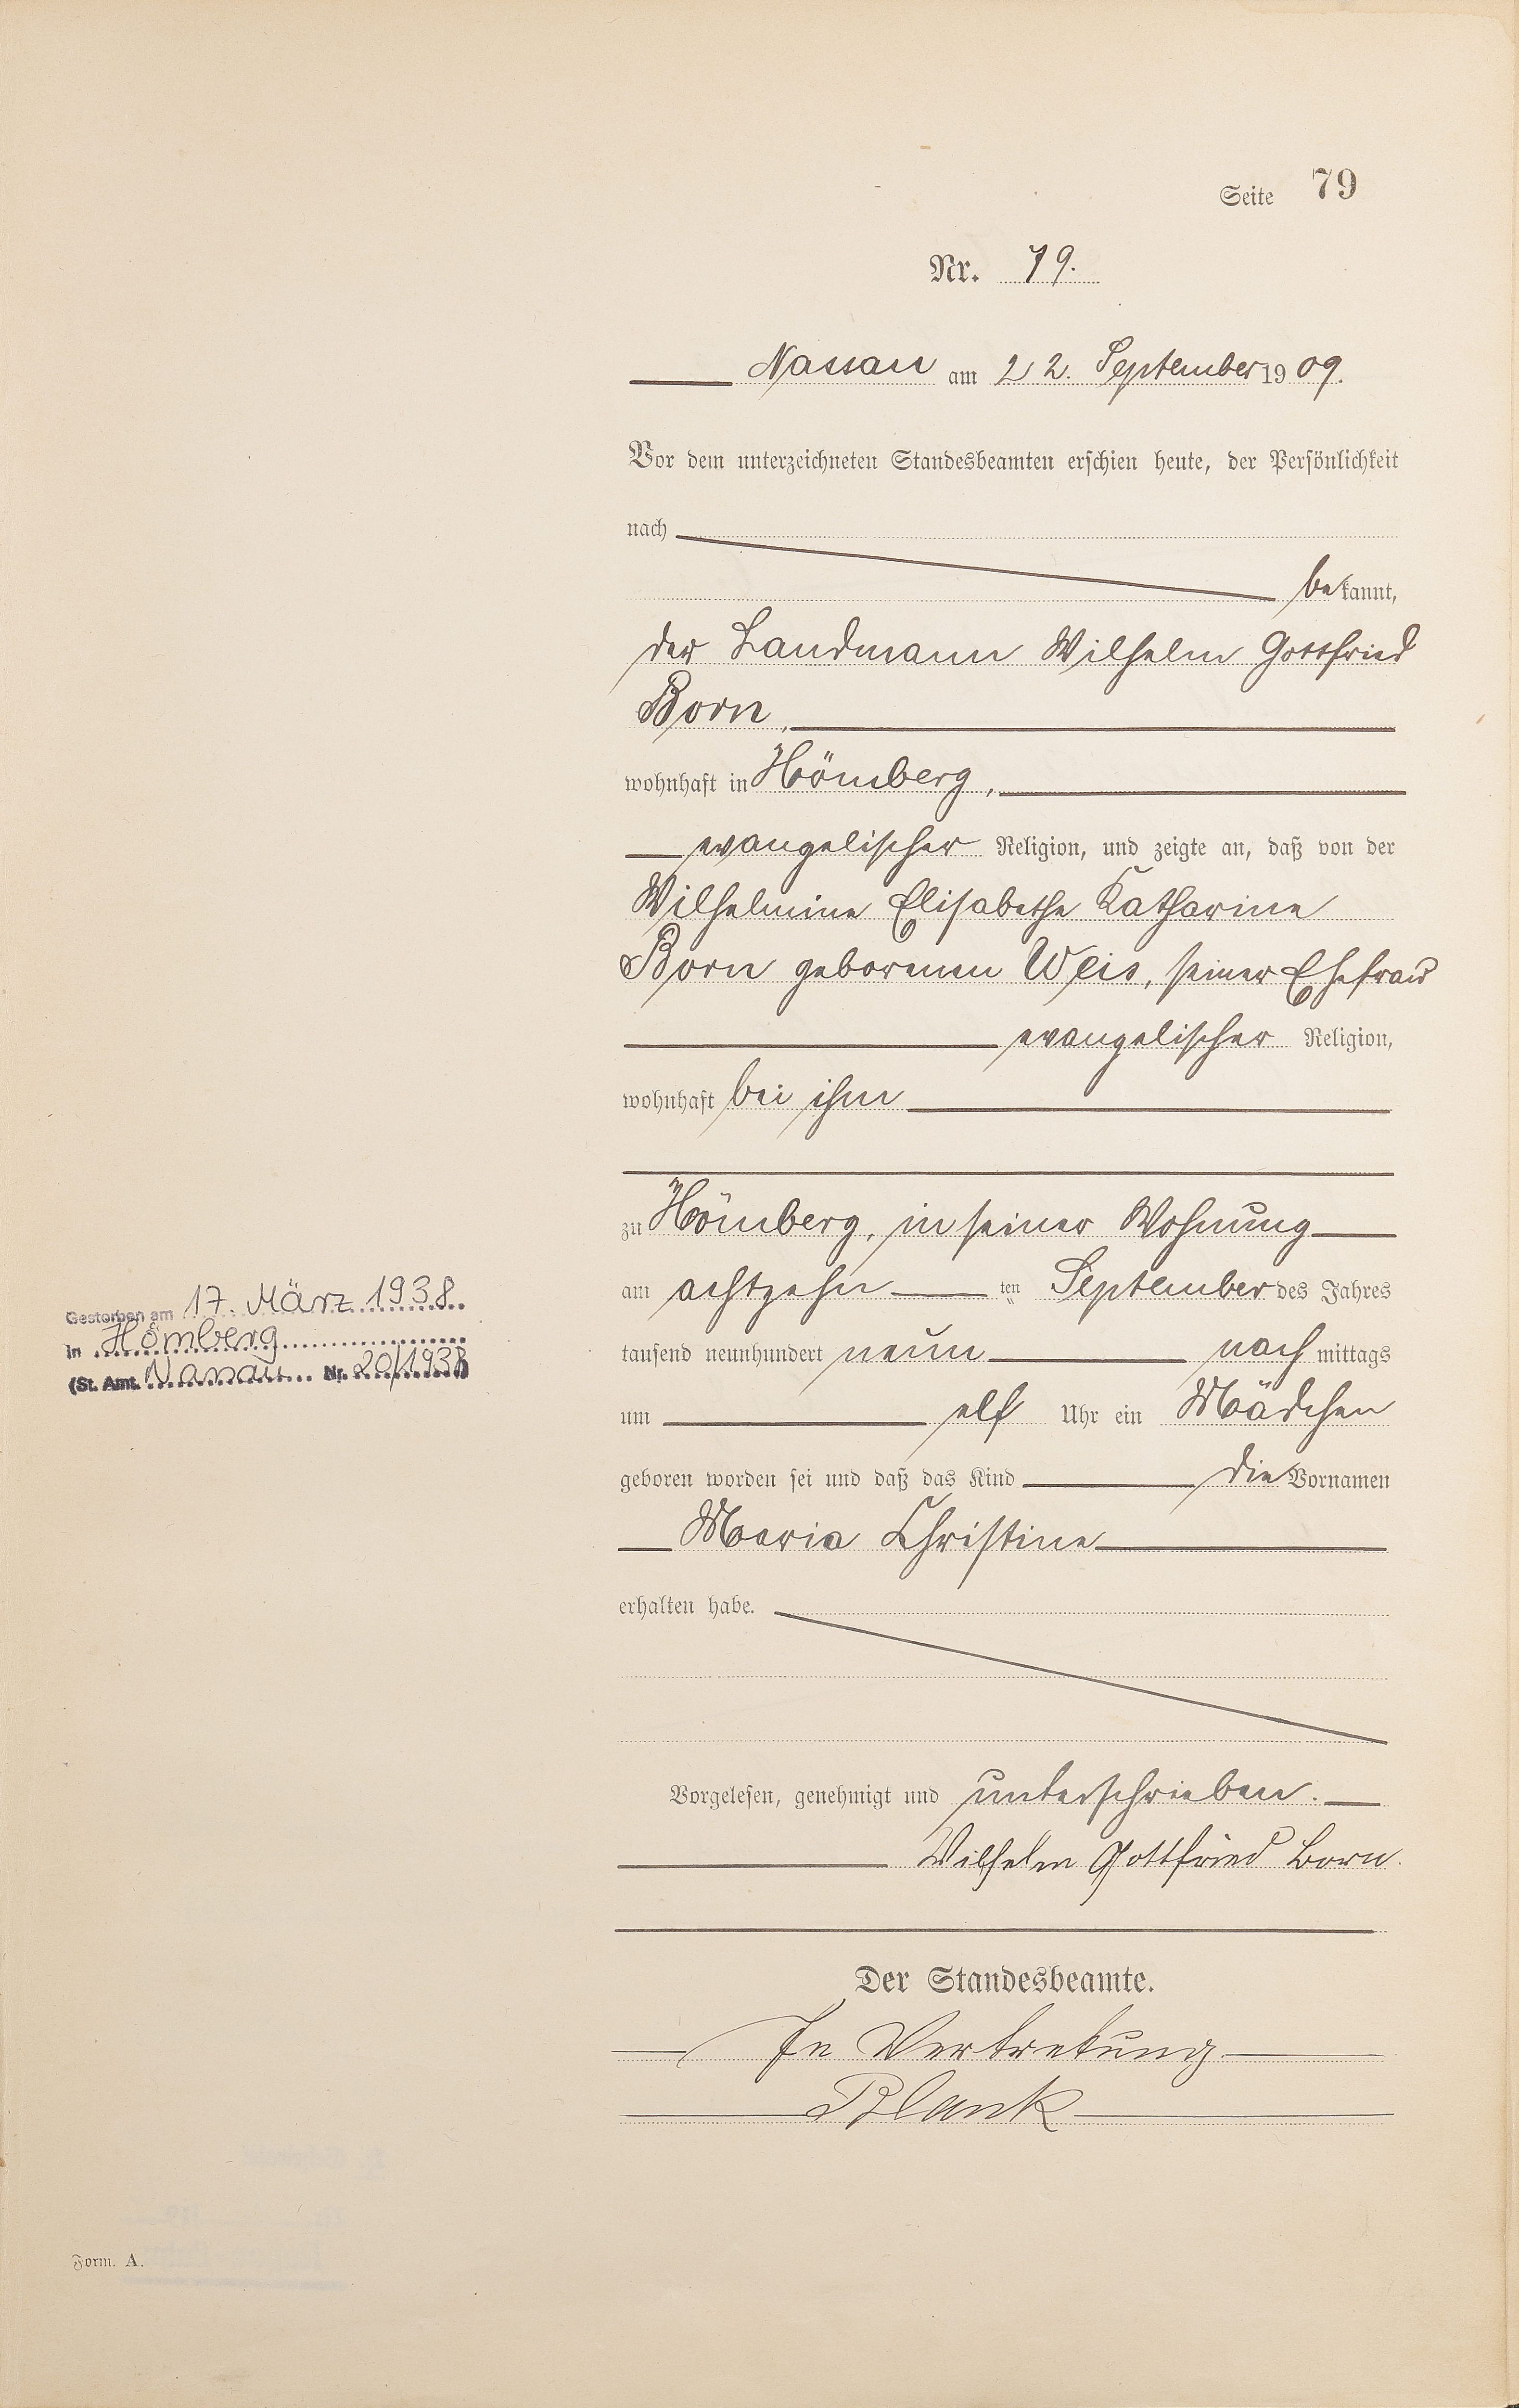 Seite 79
Nr. 79.
Nassau am 22. September 1909.
Vor dem unterzeichneten Standesbeamten erschien heute, der Persönlichkeit
nach
bekannt,
der Landmann Wilhelm Gottfried
Born,
wohnhaft in Hömberg,
evangelischer Religion, und zeigte an, daß von der
Wilhelmine Elisabethe Katharine
Born geborenen Weis, seiner Ehefrau
evangelischer Religion,
wohnhaft bei ihm
zu Hömberg, in seiner Wohnung
am achtzehnten September des Jahres
tausend neunhundert neun nachmittags
um elf Uhr ein Mädchen
geboren worden sei und daß das Kind die Vornamen
Maria Christine
erhalten habe.
Vorgelesen, genehmigt und unterschrieben.
Wilhelm Gottfried Born.
Der Standesbeamte.
In Vertretung
Blank
Gestorben am 17. März 1938
in Hömberg
(St. Amt. Nassau Nr. 20/1938)
Form. A.